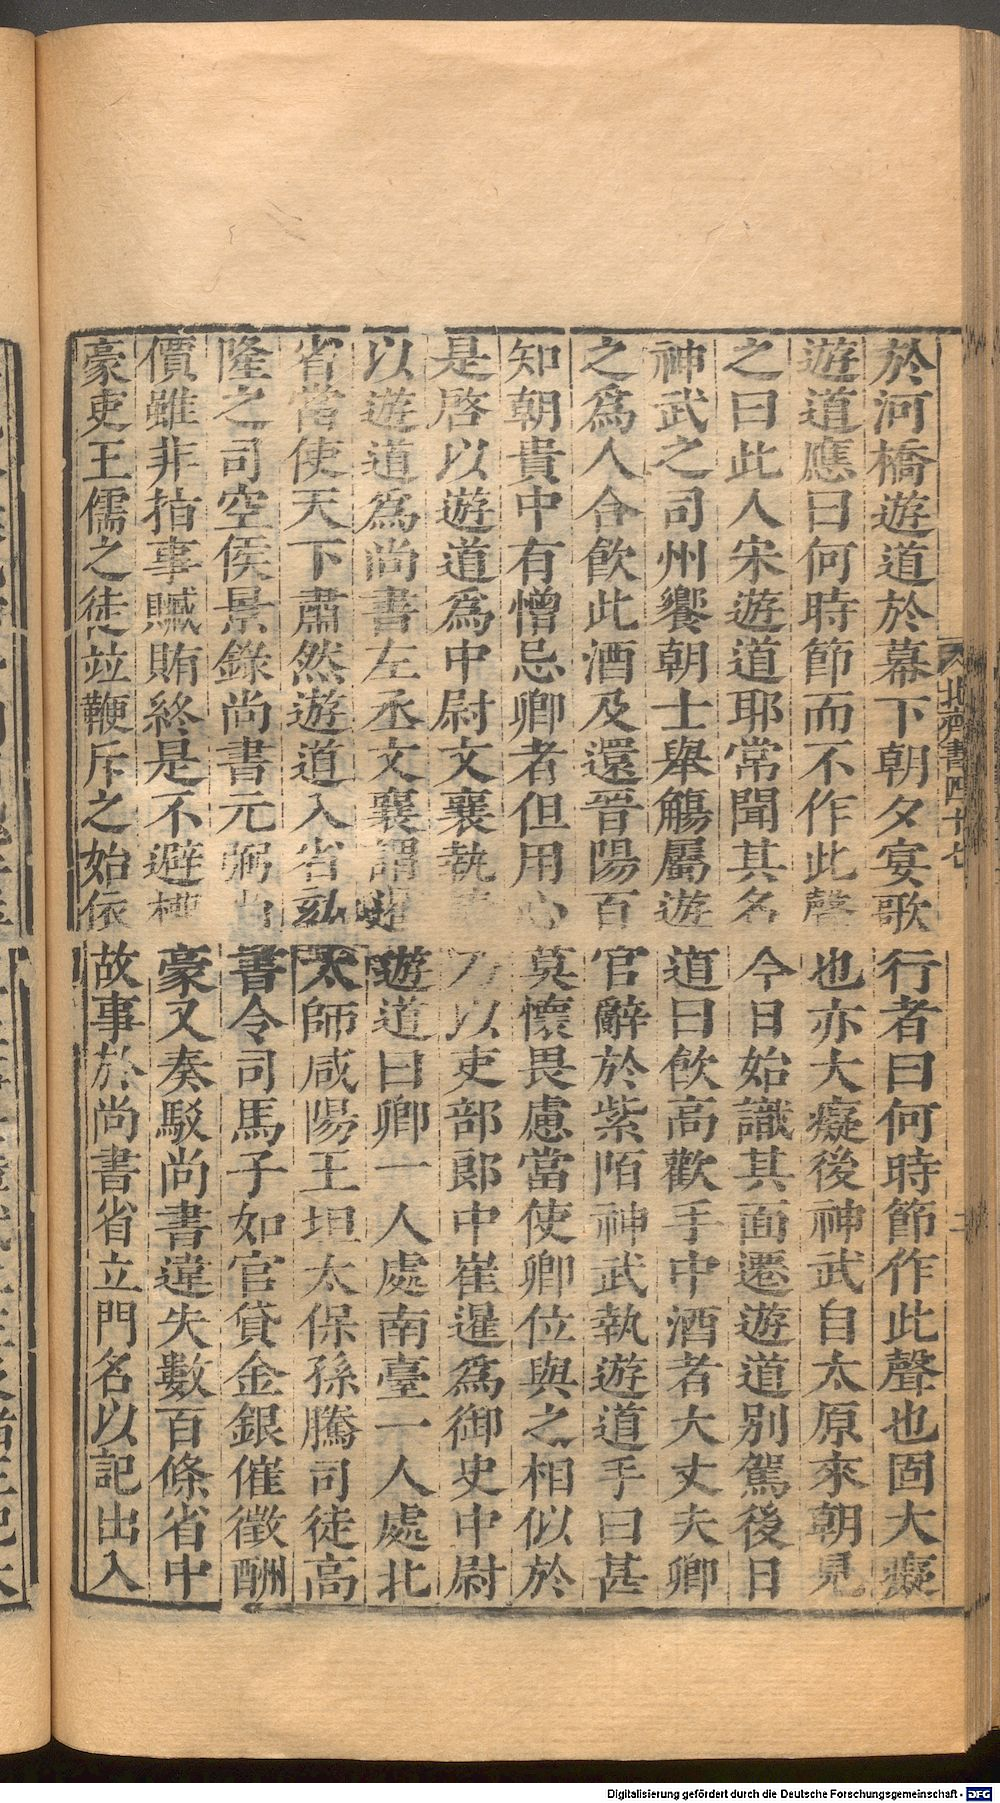 於河橋遊道於幕下朝夕宴歌行者曰何時節作此聲也固大癡
遊道應曰何時節而不作此聲也亦大癡後神武自太原來朝見
之曰此人宋遊道耶常聞其名今日始識其面遷遊道别駕後日
神武之司州饗朝士舉觴屬遊道曰飲高歡手中酒者大丈夫卿
之爲人合飲此酒及還晉陽百官辭於紫陌神武執遊道手曰甚
知朝貴中有憎忌卿者但用心莫懷畏慮當使卿位與之相似於
是啓以遊道爲中尉文襄執乃以吏部郎中崔暹爲御史中尉
以遊道爲尚書左丞文襄謂暹遊道曰卿一人處南臺一人處北
省當使天下肅然遊道入省劾太師咸陽王坦太保孫騰司徒高
隆之司空侯景錄尚書元弼尚書令司馬子如官貸金銀催徵酬
價雖非指事贓賄終是不避權豪又奏駁尚書違失數百條省中
豪吏王儒之徒竝鞭斥之始依故事於尚書省立門名以記出入
北齊書四十七
二
Digitalisierung gefördert durch die Deutsche Forschungsgemeinschaft - DFG